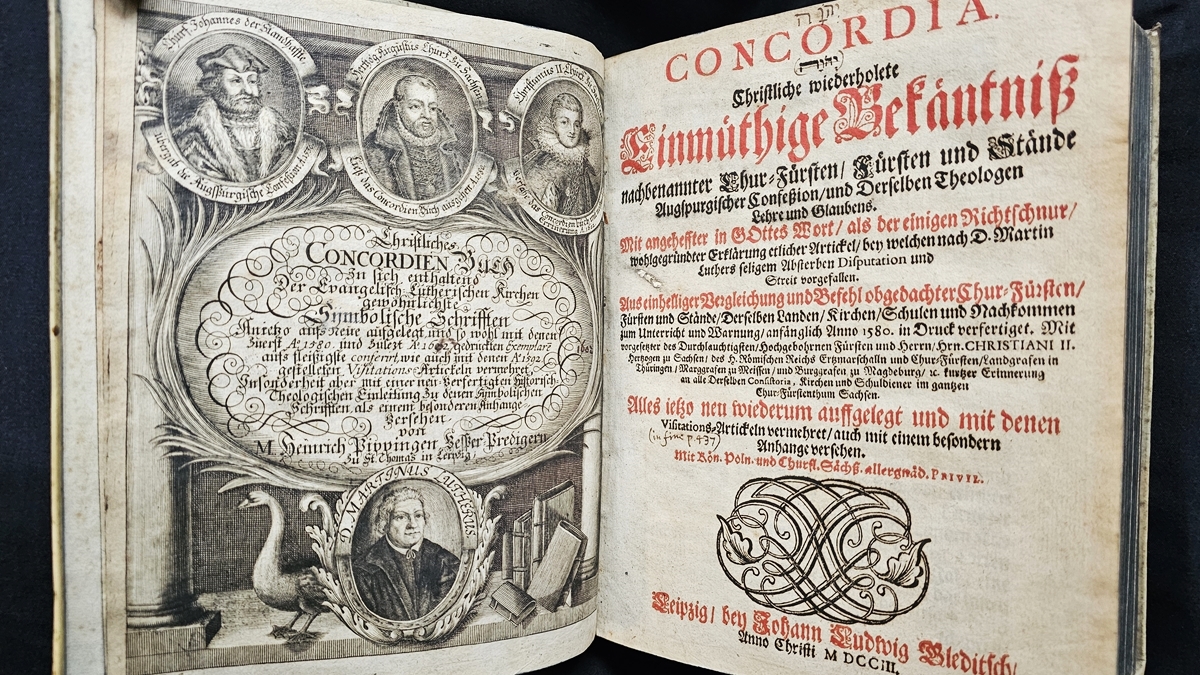 Churf. Johannes der Standhaffte.
ubergab die Augspurgische Confession A. 1530
Hertzog Augustus Churf. zu Sachsen
Liest das Concordien Buch ausgehen A. 1580
Christianus II. Churf. zu
Concordien buch
Erinnerung
Christliches
CONCORDIEN Buch
In sich enthaltend
Der Evangelisch Lutherischen Kirchen
gewöhnlichste
Symbolische Schrifften
Anietzo auffs Neue aufgelegt, und so wohl mit denen
zuerst A° 1580. und zuletzt A° gedruckten Exemplars
auffs fleißigste conferirt, wie auch mit denen A° 1592.
gestelleten Visitations-Artickeln vermehret,
Insonderheit aber mit einer neu-verfertigten Historisch-
Theologischen Einleitung zu denen Symbolischen
Schrifften als einem besonderen Anhange
Versehen
von
M. Heinrich Pippingen Vesper Predigern
zu St. Thomas in Leipzig.
D. MARTINUS LUTHERUS.
יהוה
CONCORDIA.
יהוה
Christliche wiederholete
Einmüthige Bekäntniß
nachbenannter Chur-Fürsten/ Fürsten und Stände
Augspurgischer Confeßion/ und Derselben Theologen
Lehre und Glaubens.
Mit angeheffter in GOttes Wort/ als der einigen Richtschnur/
wohlgegründter Erklärung etlicher Artickel/ bey welchen nach D. Martin
Luthers seligem Absterben Disputation und
Streit vorgefallen.
Aus einhelliger Vergleichung und Befehl obgedachter Chur-Fürsten/
Fürsten und Stände/ Derselben Landen/ Kirchen/ Schulen und Nachkommen
zum Unterricht und Warnung/ anfänglich Anno 1580. in Druck verfertiget. Mit
vorgesetzter des Durchlauchtigsten/ Hochgebohrnen Fürsten und Herrn/ Hrn. CHRISTIANI II.
Hertzogen zu Sachsen/ des H. Römischen Reichs Ertzmarschalln und Chur-Fürsten/ Landgrafen in
Thüringen/ Marggrafen zu Meissen/ und Burggrafen zu Magdeburg/ ꝛc. kurtzer Erinnerung
an alle Derselben Consistoria, Kirchen und Schuldiener im gantzen
Chur-Fürstenthum Sachsen.
Alles ietzo neu wiederum auffgelegt und mit denen
Visitations-Artickeln vermehret/ auch mit einem besondern
(in fine p. 437)
Anhange versehen.
Mit Kön. Poln. und Churfl. Sächß. allergnäd. PRIVIL.
Leipzig/ bey Johann Ludwig Gleditsch/
Anno Christi M DCCIII.